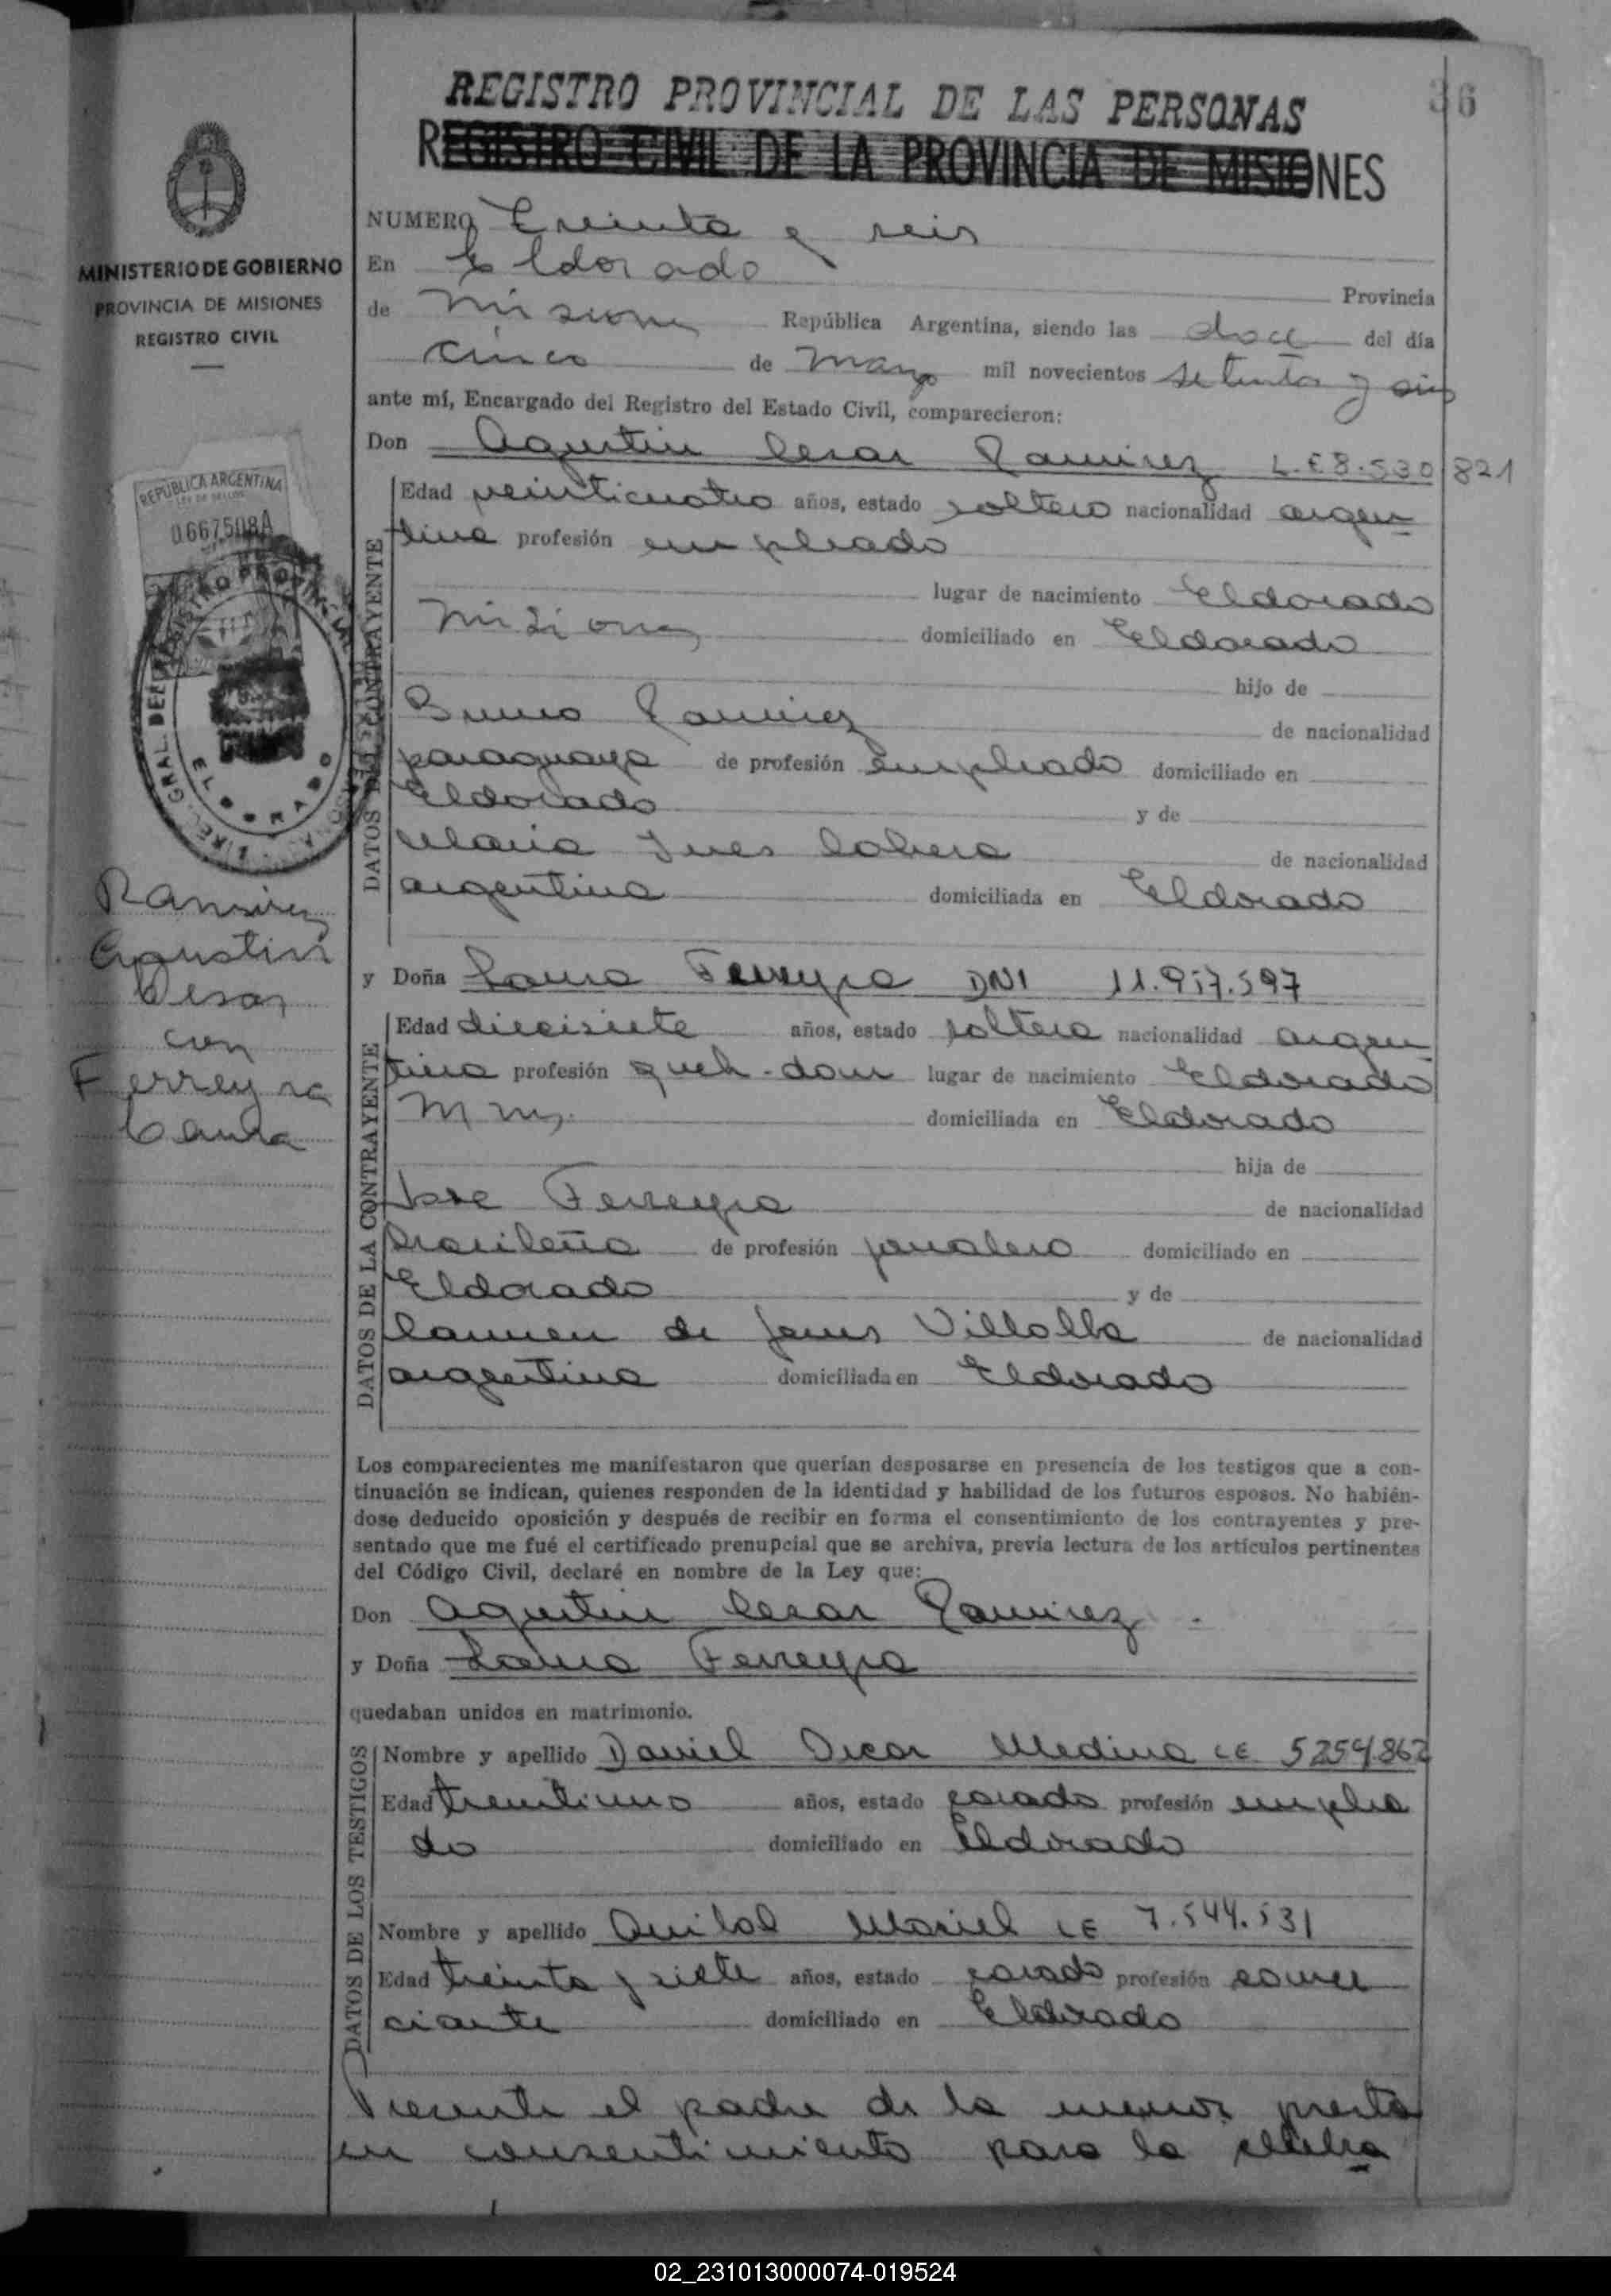 36
REGISTRO PROVINCIAL DE LAS PERSONAS
REGISTRO CIVIL DE LA PROVINCIA DE MISIONES
MINISTERIO DE GOBIERNO
PROVINCIA DE MISIONES
REGISTRO CIVIL
REPUBLICA ARGENTINA
0667508A
ELDORADO
Ramirez
Agustin
Cesar
con
Ferreyra
Laura
NUMERO Treinta y seis
En Eldorado Provincia
de Misiones República Argentina, siendo las doce del día
cinco de Marzo mil novecientos setenta y seis
ante mí, Encargado del Registro del Estado Civil, comparecieron:
Don Agustin Cesar Ramirez L.E 8.530.821
DATOS DEL CONTRAYENTE
Edad veinticuatro años, estado soltero nacionalidad argen
tina profesión empleado
lugar de nacimiento Eldorado
Misiones domiciliado en Eldorado
hijo de
Bruno Ramirez de nacionalidad
paraguaya de profesión empleado domiciliado en
Eldorado y de
Maria Ines de nacionalidad
argentina domiciliada en Eldorado
y Doña Laura Ferreyra DNI 11.957.597
DATOS DE LA CONTRAYENTE
Edad diecisiete años, estado soltera nacionalidad argen
tina profesión queh-dom lugar de nacimiento Eldorado
Mnes. domiciliada en Eldorado
hija de
Jose Ferreyra de nacionalidad
brasileña de profesión jornalero domiciliado en
Eldorado y de
Carmen de Jesus Villalba de nacionalidad
argentina domiciliada en Eldorado
Los comparecientes me manifestaron que querían desposarse en presencia de los testigos que a con-
tinuación se indican, quienes responden de la identidad y habilidad de los futuros esposos. No habién-
dose deducido oposición y después de recibir en forma el consentimiento de los contrayentes y pre-
sentado que me fué el certificado prenupcial que se archiva, previa lectura de los artículos pertinentes
del Código Civil, declaré en nombre de la Ley que:
Don Agustin Cesar Ramirez
y Doña Laura Ferreyra
quedaban unidos en matrimonio.
DATOS DE LOS TESTIGOS
Nombre y apellido Daniel Oscar Medina LE 5254.862
Edad treintiuno años, estado casado profesión emplea
do domiciliado en Eldorado
Nombre y apellido Mariel LE 7.544.531
Edad treinta y siete años, estado casado profesión comer
ciante domiciliado en Eldorado
Presente el padre de la menor presta
su consentimiento para la celebra
02_231013000074-019524